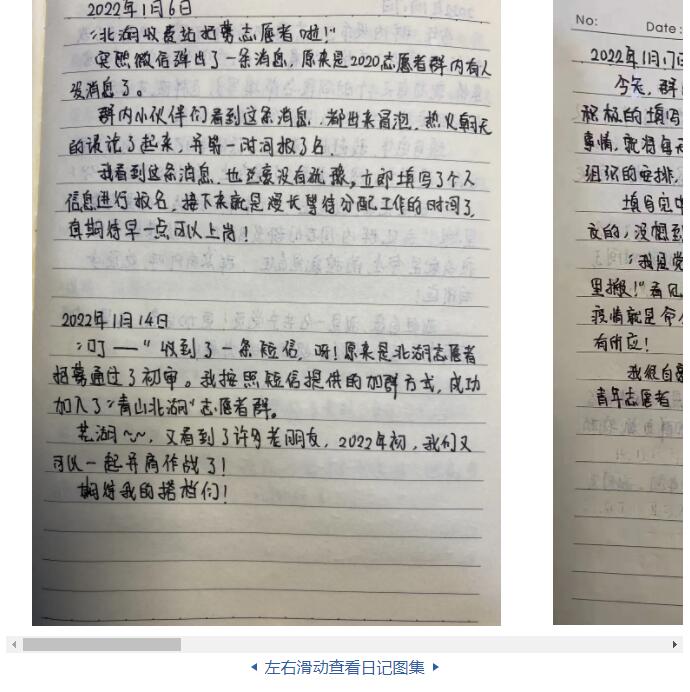 2022年1月6日
"北湖收费站招募志愿者啦！"
突然微信弹出了一条消息，原来是2020志愿者群内有人
发消息了。
群内小伙伴们看到这条消息，都出来冒泡，热火朝天
的谈论了起来，并第一时间报了名。
我看到这条消息，也丝毫没有犹豫，立即填写了个人
信息进行报名，接下来就是漫长等待分配工作的时间了，
真期待早一点可以上岗！
2022年1月14日
"叮——"收到了一条短信，呀！原来是北湖志愿者
招募通过了初审。我按照短信提供的加群方式，成功
加入了"青山北湖"志愿者群。
芜湖～～，又看到了许多老朋友，2022年初，我们又
可以一起并肩作战了！
期待我的搭档们！
No:
Date:
2022年1月17日
今天，群
积极的填写
事情，就将每
组织的安排，
填写完毕
文的，没想到
"我是党
里搬！"看见
疫情就是命令
有所应！
我很自豪
青年志愿者
左右滑动查看日记图集